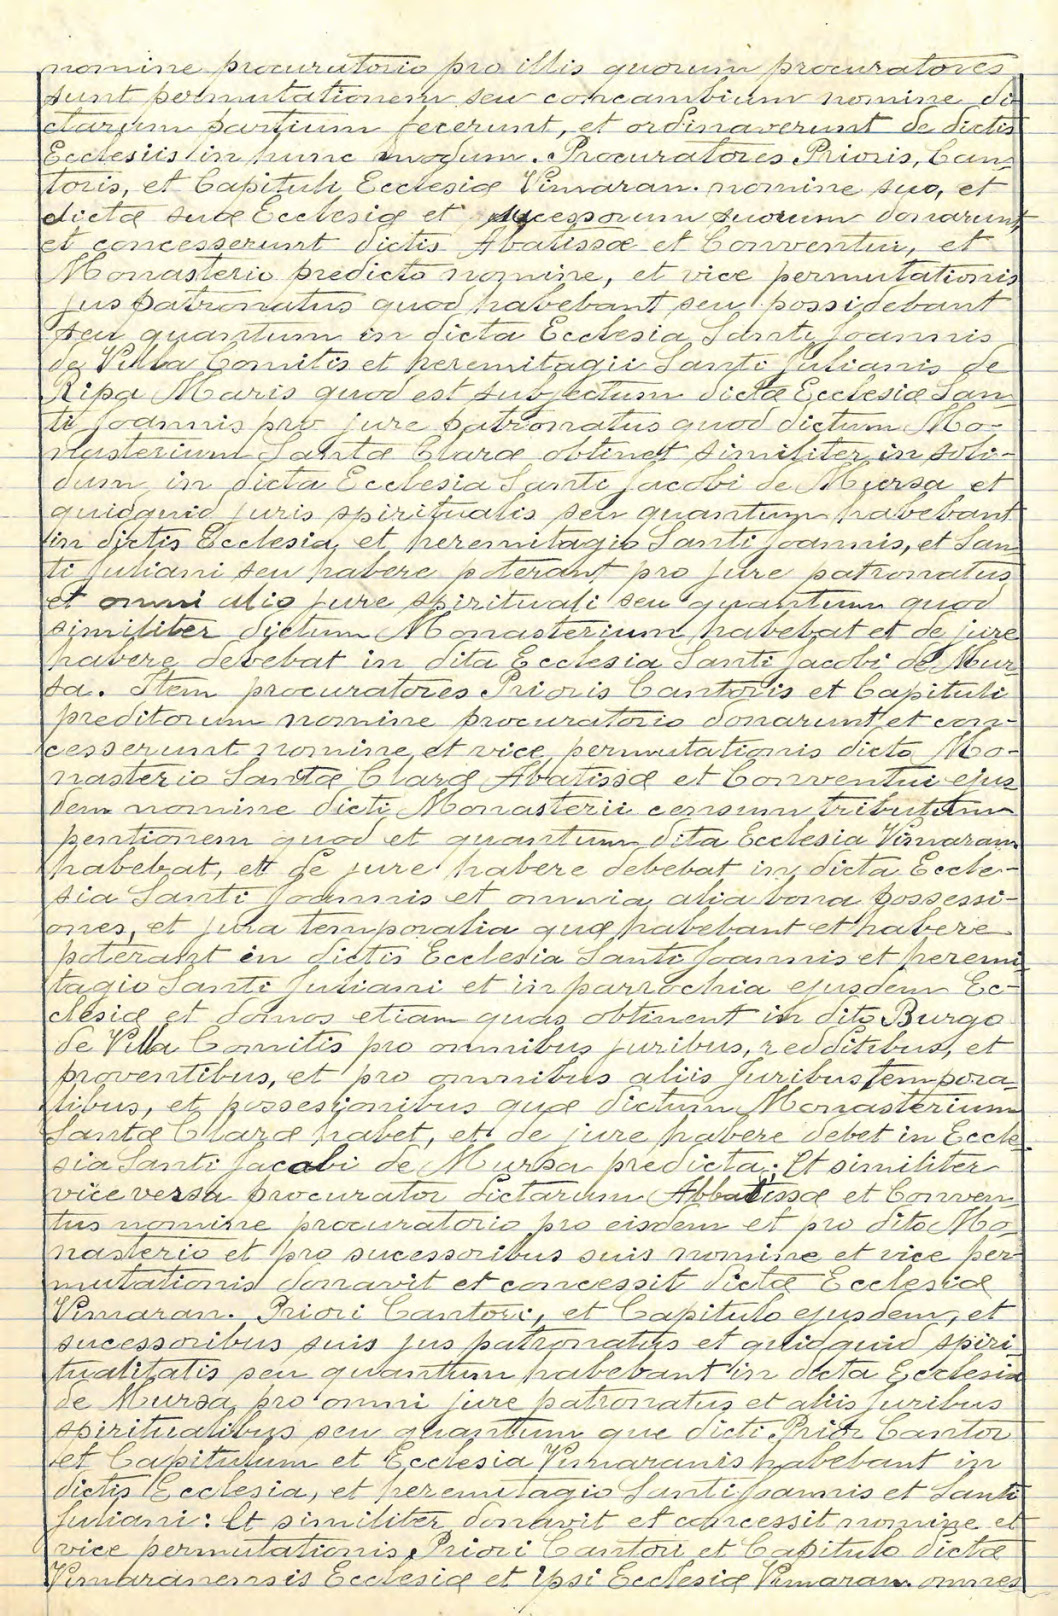 nomine procuratorio pro illis quorum procuratores
sunt permutationem seu concambium nomine di
ctarum partium fecerunt, et ordinaverunt de dictis
Ecclesiis in hunc modum. Procuratores Prioris, Can-
toris, et Capituli Ecclesiæ Vimaran. nomine suo, et
dictæ suæ Ecclesiæ et sucessorum suorum donarunt,
et concesserunt dictis Abatissæ et Conventui, et
Monasterio predicto nomine, et vice permutationis
jus patronatus quod habebant seu possidebant
seu quantum in dicta Ecclesia Santi Joannis
de Villa Comitis et heremitagii Santi Julianis de
Ripa Maris quod est subjectum dictæ Ecclesiæ San-
ti Joannis pro jure patronatus quod dictum Mo-
nasterium Santæ Claræ obtinet similiter in soli-
dum in dicta Ecclesia Santi Jacobi de Mursa et
quidquid juris spiritualis seu quantum habebant
in dictis Ecclesia, et heremitagio Santi Joannis, et San-
ti Juliani seu habere poterant pro jure patronatus
et omni alio jure spirituali seu quantum quod
similiter dictum Monasterium habebat et de jure
habere debebat in dita Ecclesia Santi Jacobi de Mur-
sa. Item procuratores Prioris Cantoris et Capituli
preditorum nomine procuratorio donarunt et con-
cesserunt nomine et vice permutationis dicto Mo-
nasterio Santæ Claræ Abatissæ et Conventui ejus
dem nomine dicti Monasterii censum tributum
pentionem quod et quantum dita Ecclesia Vimaran
habebat, et de jure habere debebat in dicta Eccle-
sia Santi Joannis et omnia alia bona possessi-
ones, et jura temporalia quæ habebant et habere
poterant in dictis Ecclesia Santi Joannis et heremi-
tagio Santi Juliani et in parrochia ejusdem Ec-
clesiæ et domos etiam quas obtinent in dito Burgo
de Villa Comitis pro omnibus juribus, redditibus, et
proventibus, et pro omnibus aliis juribus tempora-
libus, et possesionibus quæ dictum Monasterium
Santæ Claræ habet, et de jure habere debet in Eccle-
sia Santi Jacobi de Mursa predicta; Et similiter
vice versa procurator dictarum Abbatissæ et Conven-
tus nomine procuratorio pro eisdem et pro dito Mo-
nasterio et pro sucessoribus suis nomine et vice per-
mutationis donavit et concessit dictæ Ecclesiæ
Vimaran. Priori Cantori, et Capitulo ejusdem, et
sucessoribus suis jus patronatus et quidquid spiri-
tualitatis seu quantum habebant in dicta Ecclesia
de Mursa, pro omni jure patronatus et aliis juribus
spiritualibus seu quantum que dicti Prior Cantor
et Capitulum et Ecclesia Vimaranis habebant in
dictis Ecclesia, et heremitagio Santi Joannis et Santi
Juliani: Et similiter donavit et concessit nomine et
vice permutationis Priori Cantori et Capitulo dictæ
Vimaranensis Ecclesiæ et ipsi Ecclesiæ Vimaran. omnes